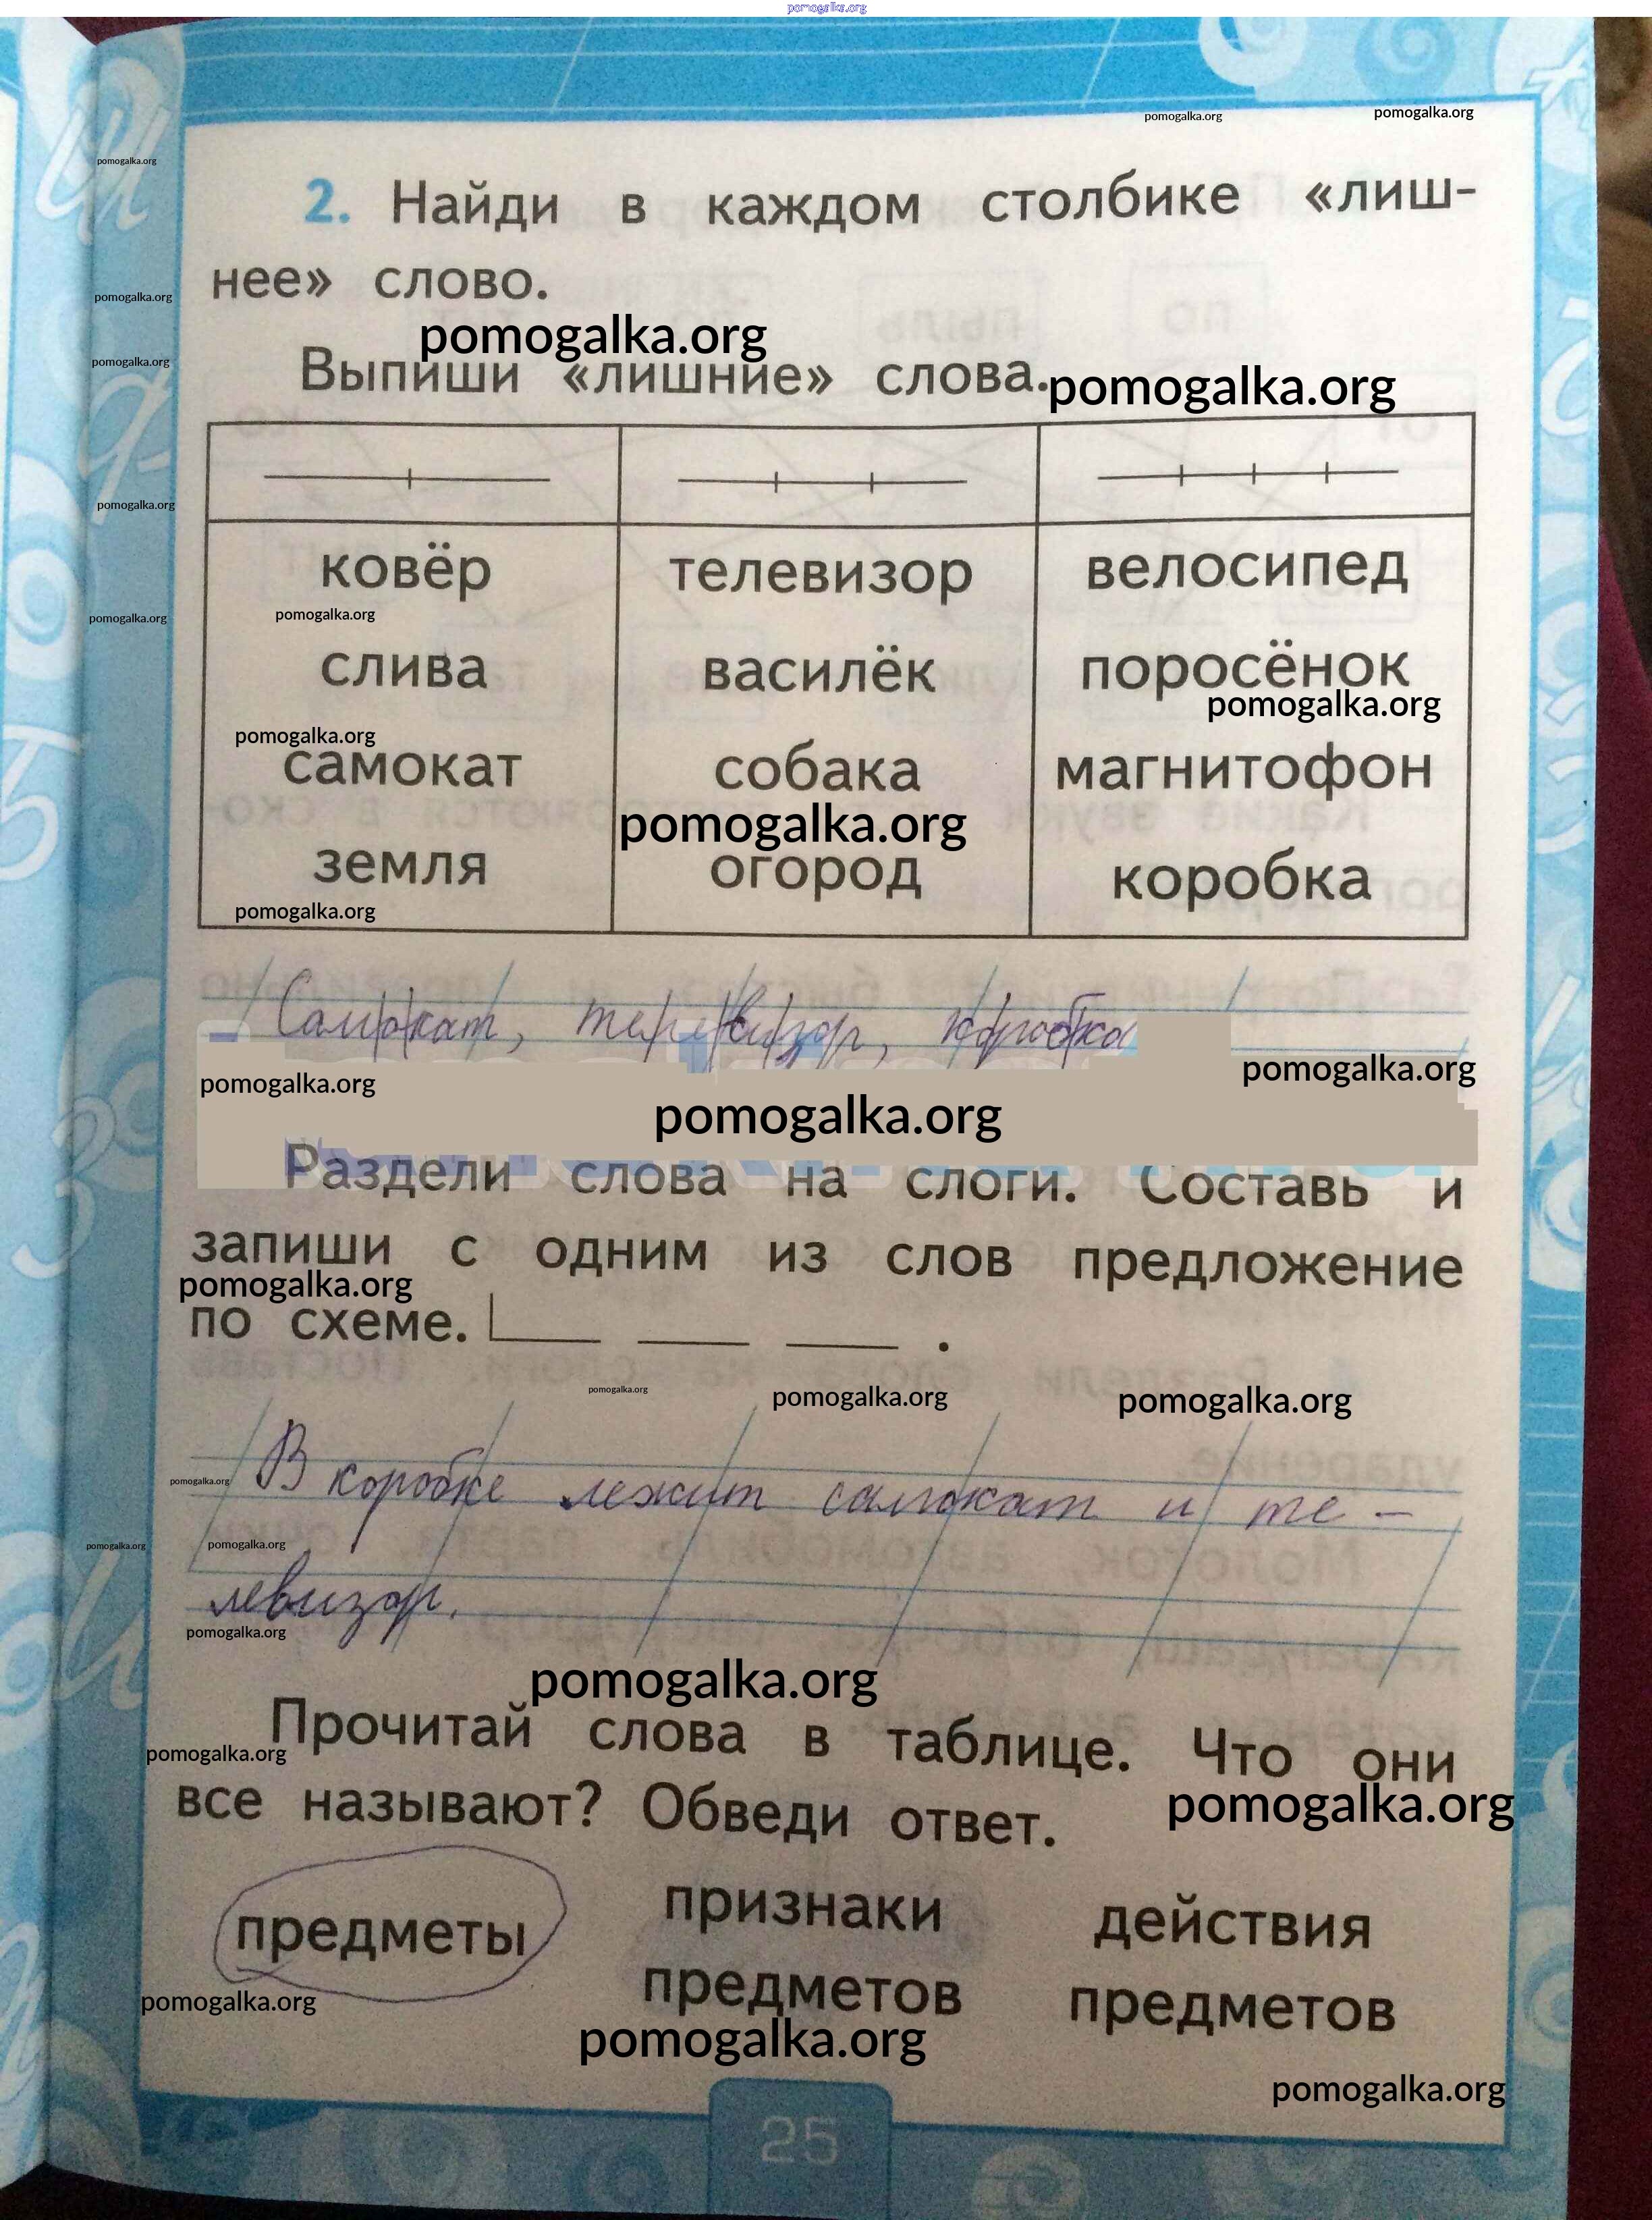 pomogalka.org
pomogalka.org pomogalka.org
pomogalka.org
2. Найди в каждом столбике «лиш-
pomogalka.org
нее» слово.
pomogalka.org
pomogalka.org
Выпиши «лишние» слова.
pomogalka.org
pomogalka.org
ковёр телевизор велосипед
pomogalka.org
pomogalka.org
слива василёк поросёнок
pomogalka.org
pomogalka.org
самокат собака магнитофон
pomogalka.org
земля огород коробка
pomogalka.org
Самокат, телевизор, коробка
pomogalka.org pomogalka.org
pomogalka.org
Раздели слова на слоги. Составь и
запиши с одним из слов предложение
pomogalka.org
по схеме.
pomogalka.org pomogalka.org pomogalka.org
pomogalka.org
В коробке лежит самокат и те -
pomogalka.org pomogalka.org
левизор.
pomogalka.org
pomogalka.org
Прочитай слова в таблице. Что они
pomogalka.org
все называют? Обведи ответ.
pomogalka.org
предметы признаки действия
предметов предметов
pomogalka.org
pomogalka.org
pomogalka.org
25